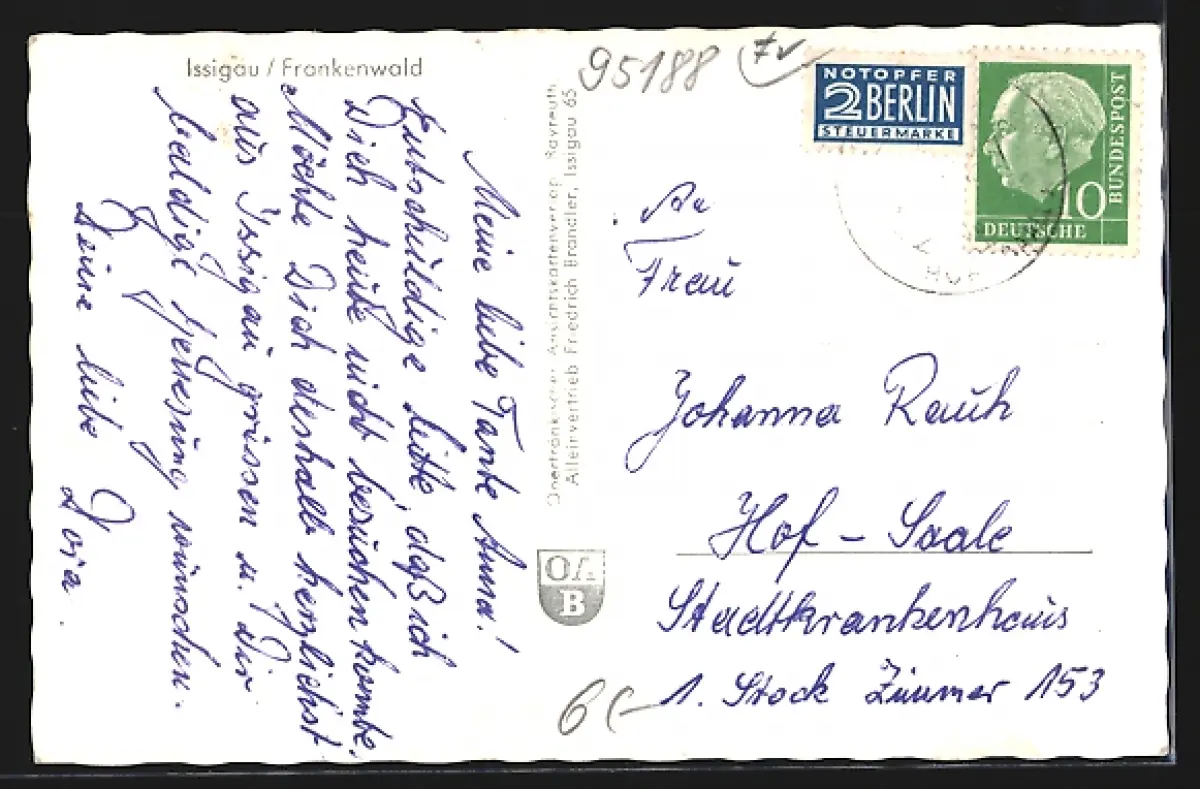 Issigau / Frankenwald
Meine liebe Tante Anna!
Entschuldige bitte daß ich
Dich heute nicht besuchen konnte.
Möchte Dich deshalb herzlichst
aus Issigau grüssen u. Dir
baldige Genesung wünschen.
Deine liebe
Oberfränkischer Ansichtskartenverlag Bayreuth
Alleinvertrieb Friedrich Brandler, Issigau 65
OA
B
95188
NOTOPFER
2 BERLIN
STEUERMARKE
DEUTSCHE
BUNDESPOST
10
HOF
An
Frau
Johanna Rauh
Hof - Saale
Stadtkrankenhaus
1. Stock Zimmer 153
6